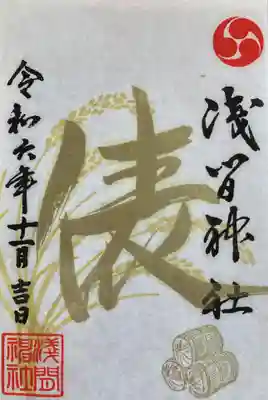 浅间神社
俵
令和六年十一月吉日
浅間神社